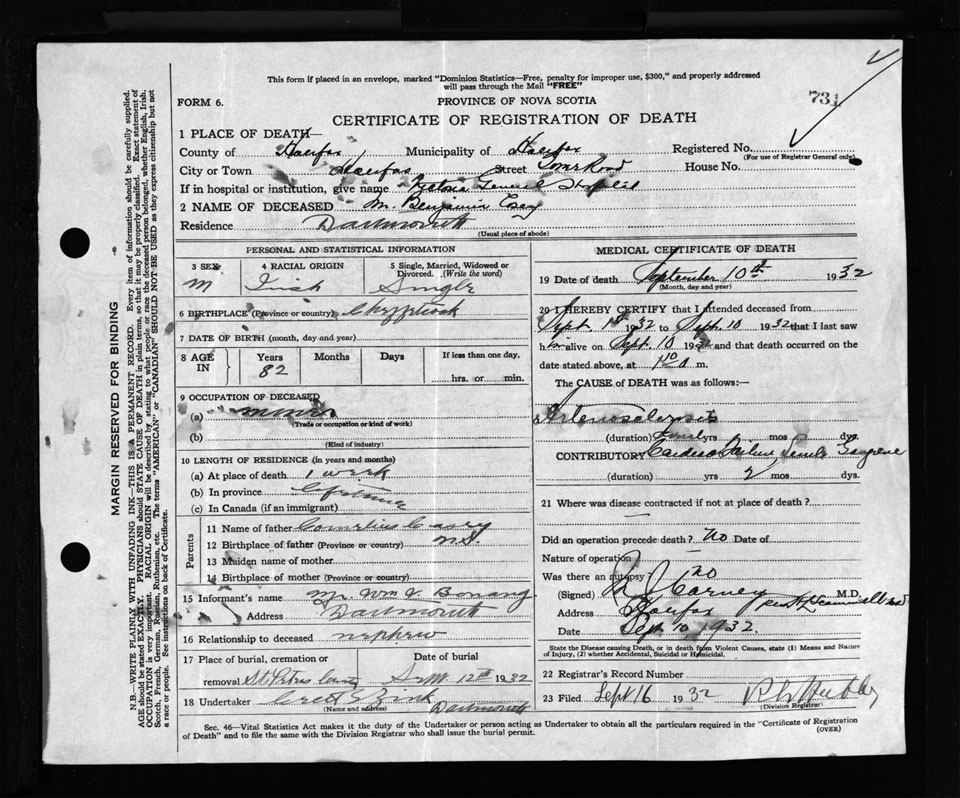 This form if placed in an envelope, marked "Dominion Statistics—Free, penalty for improper use, $300," and properly addressed
will pass through the Mail "FREE"
731
FORM 6. PROVINCE OF NOVA SCOTIA
CERTIFICATE OF REGISTRATION OF DEATH
1 PLACE OF DEATH—
County of Halifax Municipality of Halifax Registered No.
(For use of Registrar General only)
City or Town Halifax Street Tower Road House No.
If in hospital or institution, give name Victoria General Hospital
2 NAME OF DECEASED Mr. Benjamin Casey
Residence Dartmouth
(Usual place of abode)
PERSONAL AND STATISTICAL INFORMATION
3 SEX 4 RACIAL ORIGIN 5 Single, Married, Widowed or
Divorced (Write the word)
M Irish Single
6 BIRTHPLACE (Province or country)
7 DATE OF BIRTH (month, day and year)
8 AGE IN Years Months Days If less than one day,
82 hrs. or min.
9 OCCUPATION OF DECEASED
(a) miner
(Trade or occupation or kind of work)
(b)
(Kind of industry)
10 LENGTH OF RESIDENCE (in years and months)
(a) At place of death 1 week
(b) In province Lifetime
(c) In Canada (if an immigrant)
Parents
11 Name of father Casey
12 Birthplace of father (Province or country) N.S.
13 Maiden name of mother
14 Birthplace of mother (Province or country)
15 Informant's name Mr. Wm J Bonang
Address Dartmouth
16 Relationship to deceased nephew
17 Place of burial, cremation or Date of burial
removal St. Peters Cemetery Sept 12th 1932
18 Undertaker Zink
(Name and address) Dartmouth
MEDICAL CERTIFICATE OF DEATH
19 Date of death September 10th 1932
(Month, day and year)
20 I HEREBY CERTIFY that I attended deceased from
Sept. 1st 1932 to Sept. 10 1932 that I last saw
h im alive on Sept. 10 193 and that death occurred on the
date stated above, at m.
The CAUSE OF DEATH was as follows:
Arteriosclerosis
(duration) yrs mos dys.
CONTRIBUTORY Cardiac Failure Senile Gangrene
(duration) yrs 2 mos dys.
21 Where was disease contracted if not at place of death?
—
Did an operation precede death? no Date of
Nature of operation
Was there an autopsy no
(Signed) Carney M.D.
Address Halifax
Date Sept 10 1932.
State the Disease causing Death, or in death from Violent Causes, state (1) Means and Nature
of Injury, (2) whether Accidental, Suicidal or Homicidal.
22 Registrar's Record Number
23 Filed Sept 16 1932
(Division Registrar)
Sec. 46—Vital Statistics Act makes it the duty of the Undertaker or person acting as Undertaker to obtain all the particulars required in the "Certificate of Registration
of Death" and to file the same with the Division Registrar who shall issue the burial permit. (OVER)
MARGIN RESERVED FOR BINDING
N.B.—WRITE PLAINLY, WITH UNFADING INK—THIS IS A PERMANENT RECORD. Every item of information should be carefully supplied.
AGE should be stated EXACTLY. PHYSICIANS should STATE CAUSE OF DEATH in plain terms, so that it may be properly classified. Exact statement of
OCCUPATION is very important. RACIAL ORIGIN will be described by stating to what people or race the deceased person belonged, whether English, Irish,
Scotch, French, German, Russian, Ruthenian, etc. The terms "AMERICAN" or "CANADIAN" SHOULD NOT BE USED as they express citizenship but not
a race or people. See instructions on back of Certificate.